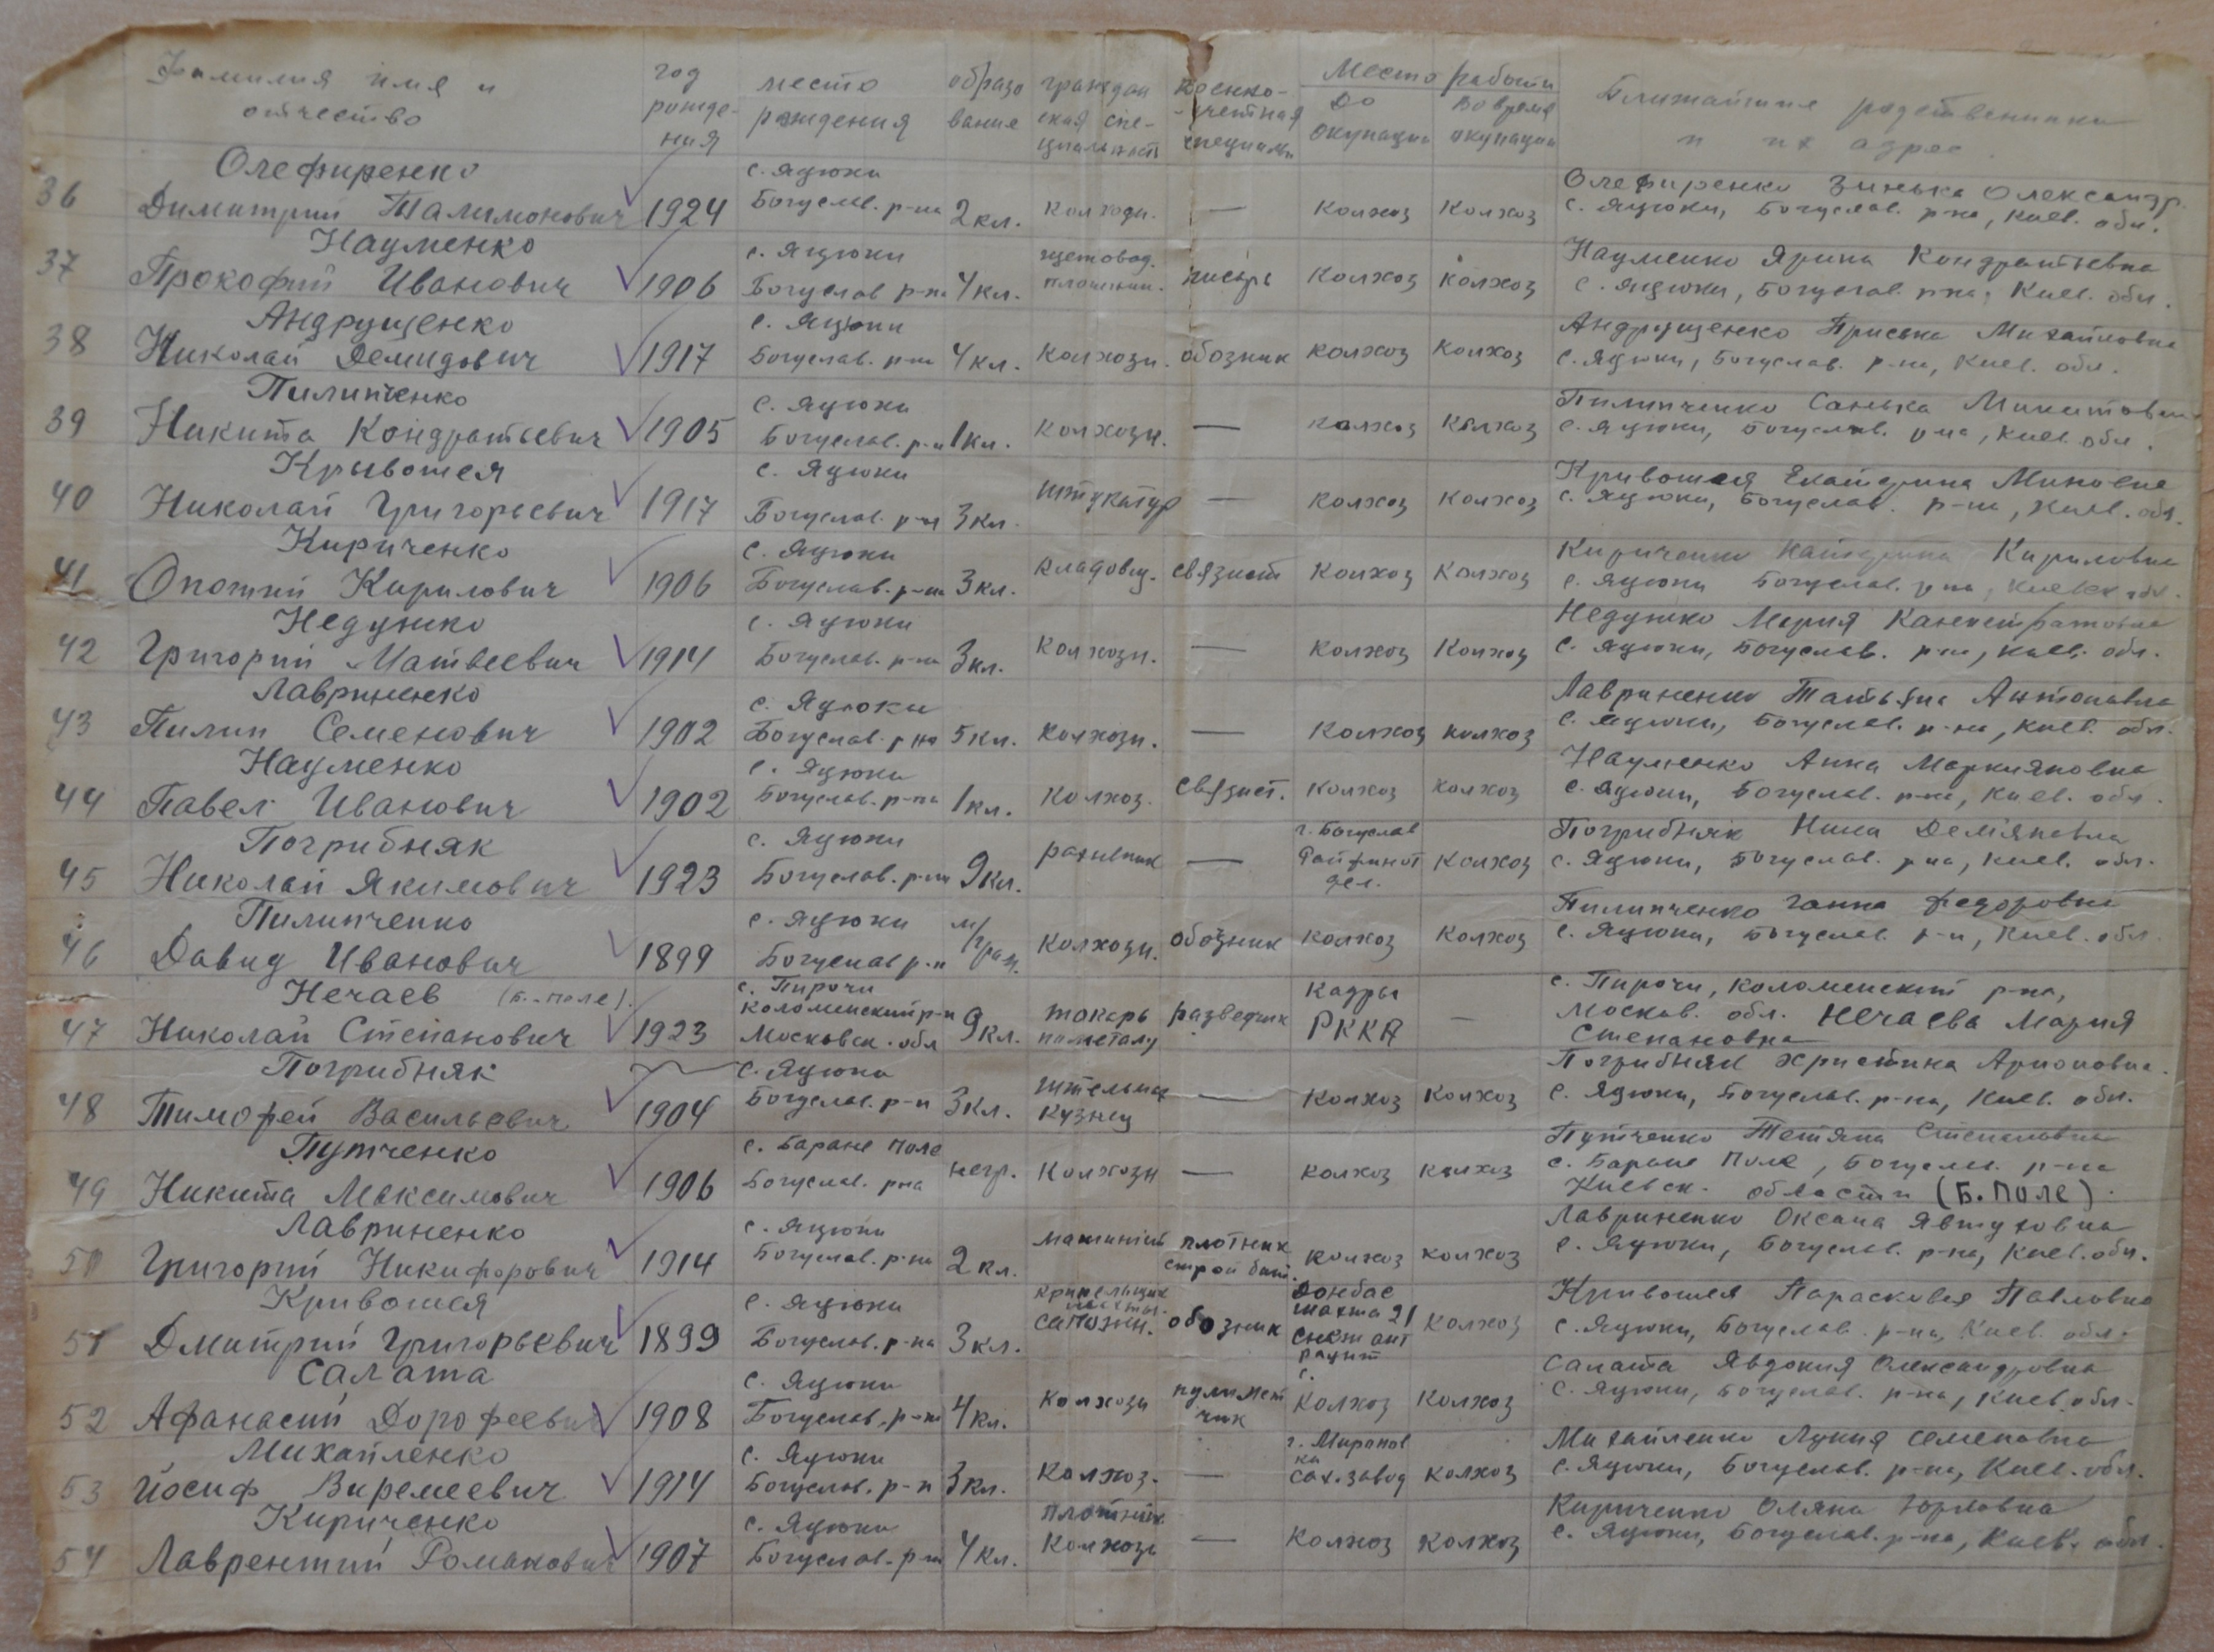 Фамилия имя и отчество год рождения место рождения образование гражданская специальность военно-учетная специальн Место работы до окупации во время окупации Ближайшие родственники и их адрес
Олефиренко с. Яцюки Олефиренко Зинька Олександр.
36 Димитрий Талимонович 1924 Богуслав. р-на 2 кл. колхозн. — колхоз колхоз с. Яцюки, Богуслав. р-на, Киев. обл.
Науменко с. Яцюки щетовод. Науменко Ярина Кондратьевна
37 Прокофий Иванович 1906 Богуслав р-н 4 кл. писарь колхоз колхоз с. Яцюки, Богуслав. р-на, Киев. обл.
Андрущенко с. Яцюки Андрущенко Приська Михайловна
38 Николай Демидович 1917 Богуслав. р-на 4 кл. колхозн. обозник колхоз колхоз с. Яцюки, Богуслав. р-на, Киев. обл.
Пилипченко с. Яцюки Пилипченко Санька
39 Никита Кондратьевич 1905 Богуслав. р-н 1 кл. колхозн. — колхоз колхоз с. Яцюки, Богуслав. р-на, Киев. обл.
Крывошея с. Яцюки Кривошея Екатерина
40 Николай Григорьевич 1917 Богуслав. р-на 3 кл. штукатур — колхоз колхоз с. Яцюки, Богуслав. р-на, Киев. обл.
Кириченко с. Яцюки Кириченко Катерина Кириловна
41 Кирилович 1906 Богуслав. р-на 3 кл. кладовщ. связист колхоз колхоз с. Яцюки Богуслав. р-на, Киевск обл.
Недушко с. Яцюки Недушко Мария
42 Григорий Матвеевич 1914 Богуслав. р-на 3 кл. колхозн. — колхоз колхоз с. Яцюки, Богуслав. р-на, Киев. обл.
Лавриненко с. Яцюки Лавриненко Татьяна Антоновна
43 Пилип Семенович 1902 Богуслав. р-на 5 кл. колхозн. — колхоз колхоз с. Яцюки, Богуслав. р-на, Киев. обл.
Науменко с. Яцюки Науменко Анна Маркияновна
44 Павел Иванович 1902 Богуслав. р-на 1 кл. колхоз. связист. колхоз колхоз с. Яцюки, Богуслав. р-на, Киев. обл.
Погрибняк с. Яцюки г. Богуслав Погрибняк Нина Демяновна
45 Николай Якимович 1923 Богуслав. р-на 9 кл. рахивник — Райфинотдел. колхоз с. Яцюки, Богуслав. р-на, Киев. обл.
Пилипченко с. Яцюки м/грам. Пилипченко Ганна Федоровна
46 Давид Иванович 1899 Богуслав р-н колхозн. обозник колхоз колхоз с. Яцюки, Богуслав. р-н, Киев. обл.
Нечаев (Б.-поле). с. Пирочи кадры с. Пирочи, Коломенский р-на,
47 Николай Степанович 1923 Коломенский р-н Московск. обл 9 кл. токарь по металу разведчик РККА — Москов. обл. Нечаева Мария
Степановна
Погрибняк с. Яцюки Погрибняк Христина
48 Тимофей Васильевич 1904 Богуслав. р-н 3 кл. кузнец — колхоз колхоз с. Яцюки, Богуслав. р-на, Киев. обл.
Путченко с. Баране Поле Путченко Тетяна Степановна
49 Никита Максимович 1906 Богуслав. р-на негр. колхозн — колхоз колхоз с. Баране Поле, Богуслав. р-на
Киевск. области (Б. ПОЛЕ).
Лавриненко с. Яцюки машинист плотник Лавриненко Оксана Явтуховна
50 Григорий Никифорович 1914 Богуслав. р-на 2 кл. строй бат. колхоз колхоз с. Яцюки, Богуслав. р-на, Киев. обл.
Кривошея с. Яцюки Донбас Кривошея Парасковея Павловна
51 Дмитрий Григорьевич 1899 Богуслав. р-на 3 кл. сапожн. обозник шахта 21 колхоз с. Яцюки, Богуслав. р-на, Киев. обл.
Салата с. Яцюки Салата Явдокия Олександровна
52 Афанасий Дорофеевич 1908 Богуслав. р-на 4 кл. колхозн пулиметчик колхоз колхоз с. Яцюки, Богуслав. р-на, Киев. обл.
Михайленко с. Яцюки г. Мироновка Михайленко Лукия Семеновна
53 Йосиф Виремеевич 1914 Богуслав. р-н 3 кл. колхоз. — сах. завод колхоз с. Яцюки, Богуслав. р-на, Киев. обл.
Кириченко с. Яцюки плотник Кириченко Оляна
54 Лаврентий Романович 1907 Богуслав. р-на 4 кл. колхозн — колхоз колхоз с. Яцюки, Богуслав. р-на, Киев. обл.